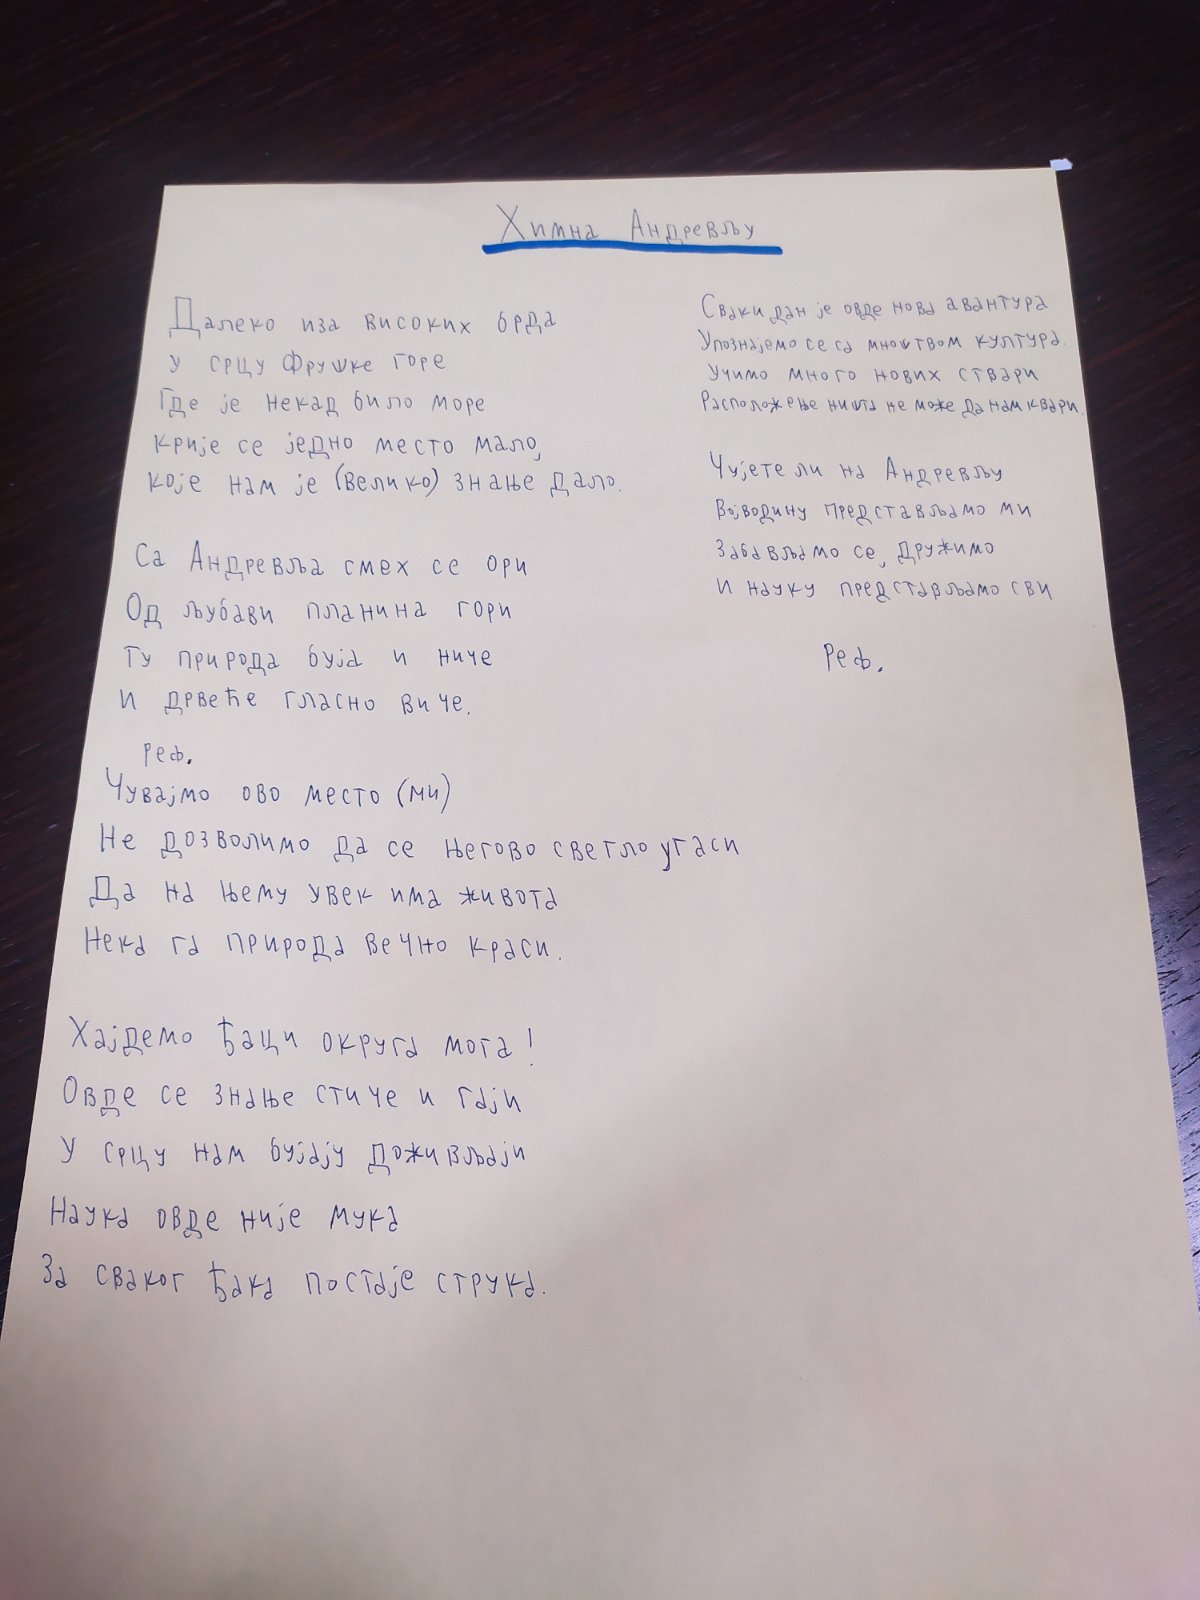 Химна Андревљу
Далеко иза високих брда
у срцу Фрушке горе
Где је некад било море
крије се једно место мало,
које нам је (велико) знање дало.
Са Андревља смех се ори
Од љубави планина гори
Ту природа буја и ниче
И дрвеће гласно виче.
Реф.
Чувајмо ово место (ми)
Не дозволимо да се његово светло угаси
Да на њему увек има живота
Нека га природа вечно краси.
Хајдемо ђаци округа мога!
Овде се знање стиче и гаји
У срцу нам бујају доживљаји
Наука овде није мука
За сваког ђака постаје струка.
Сваки дан је овде нова авантура
Упознајемо се са мноштвом култура.
Учимо много нових ствари
Расположење ништа не може да нам квари.
Чујете ли на Андревљу
Војводину представљамо ми
Забављамо се, дружимо
И науку представљамо сви
Реф.